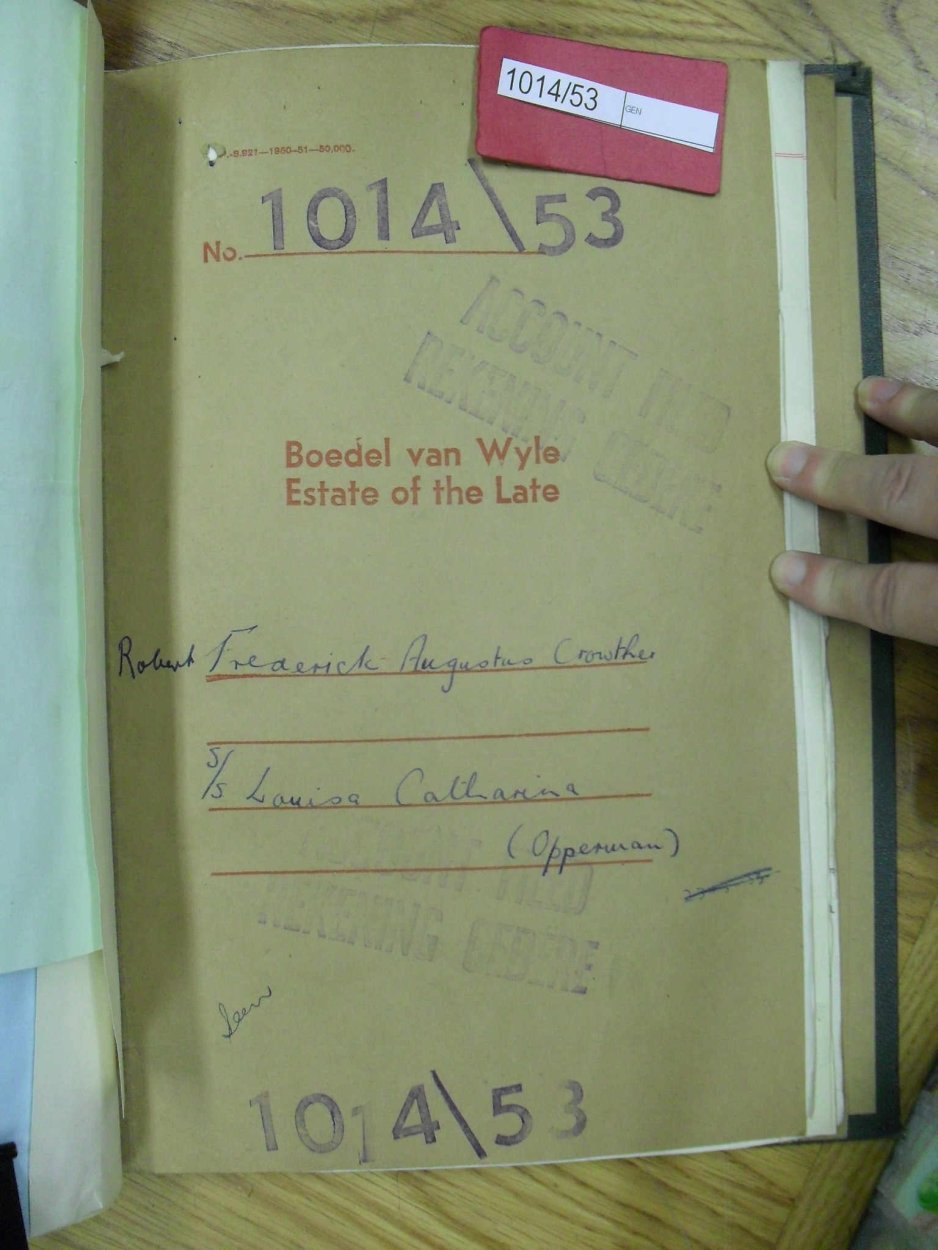 1014/53 GEN
.-9.921—1950-51—50,000.
No. 1014\53
ACCOUNT FILED
REKENING GEDERE
Boedel van Wyle
Estate of the Late
Robert Frederick Augustus Crowther
s/s Louisa Catharina
(Opperman)
ACCOUNT FILED
REKENING GEDERE
1014\53